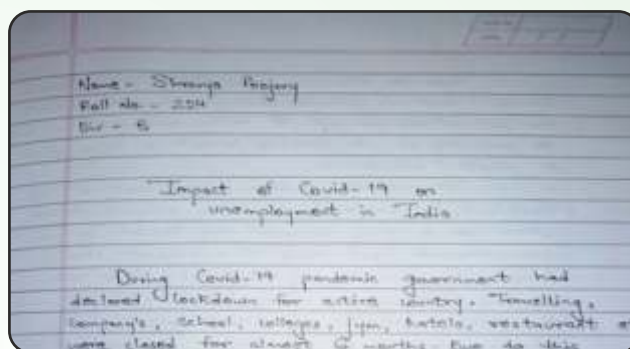 Name - Shranya Poojary
Roll No. - 254
Div - B
Impact of Covid-19 on
unemployment in India
During Covid-19 pandemic government had
declared lockdown for entire country. Travelling,
company's, school, colleges, gym, hotels, restaurant
were closed for almost 6 months. Due to this